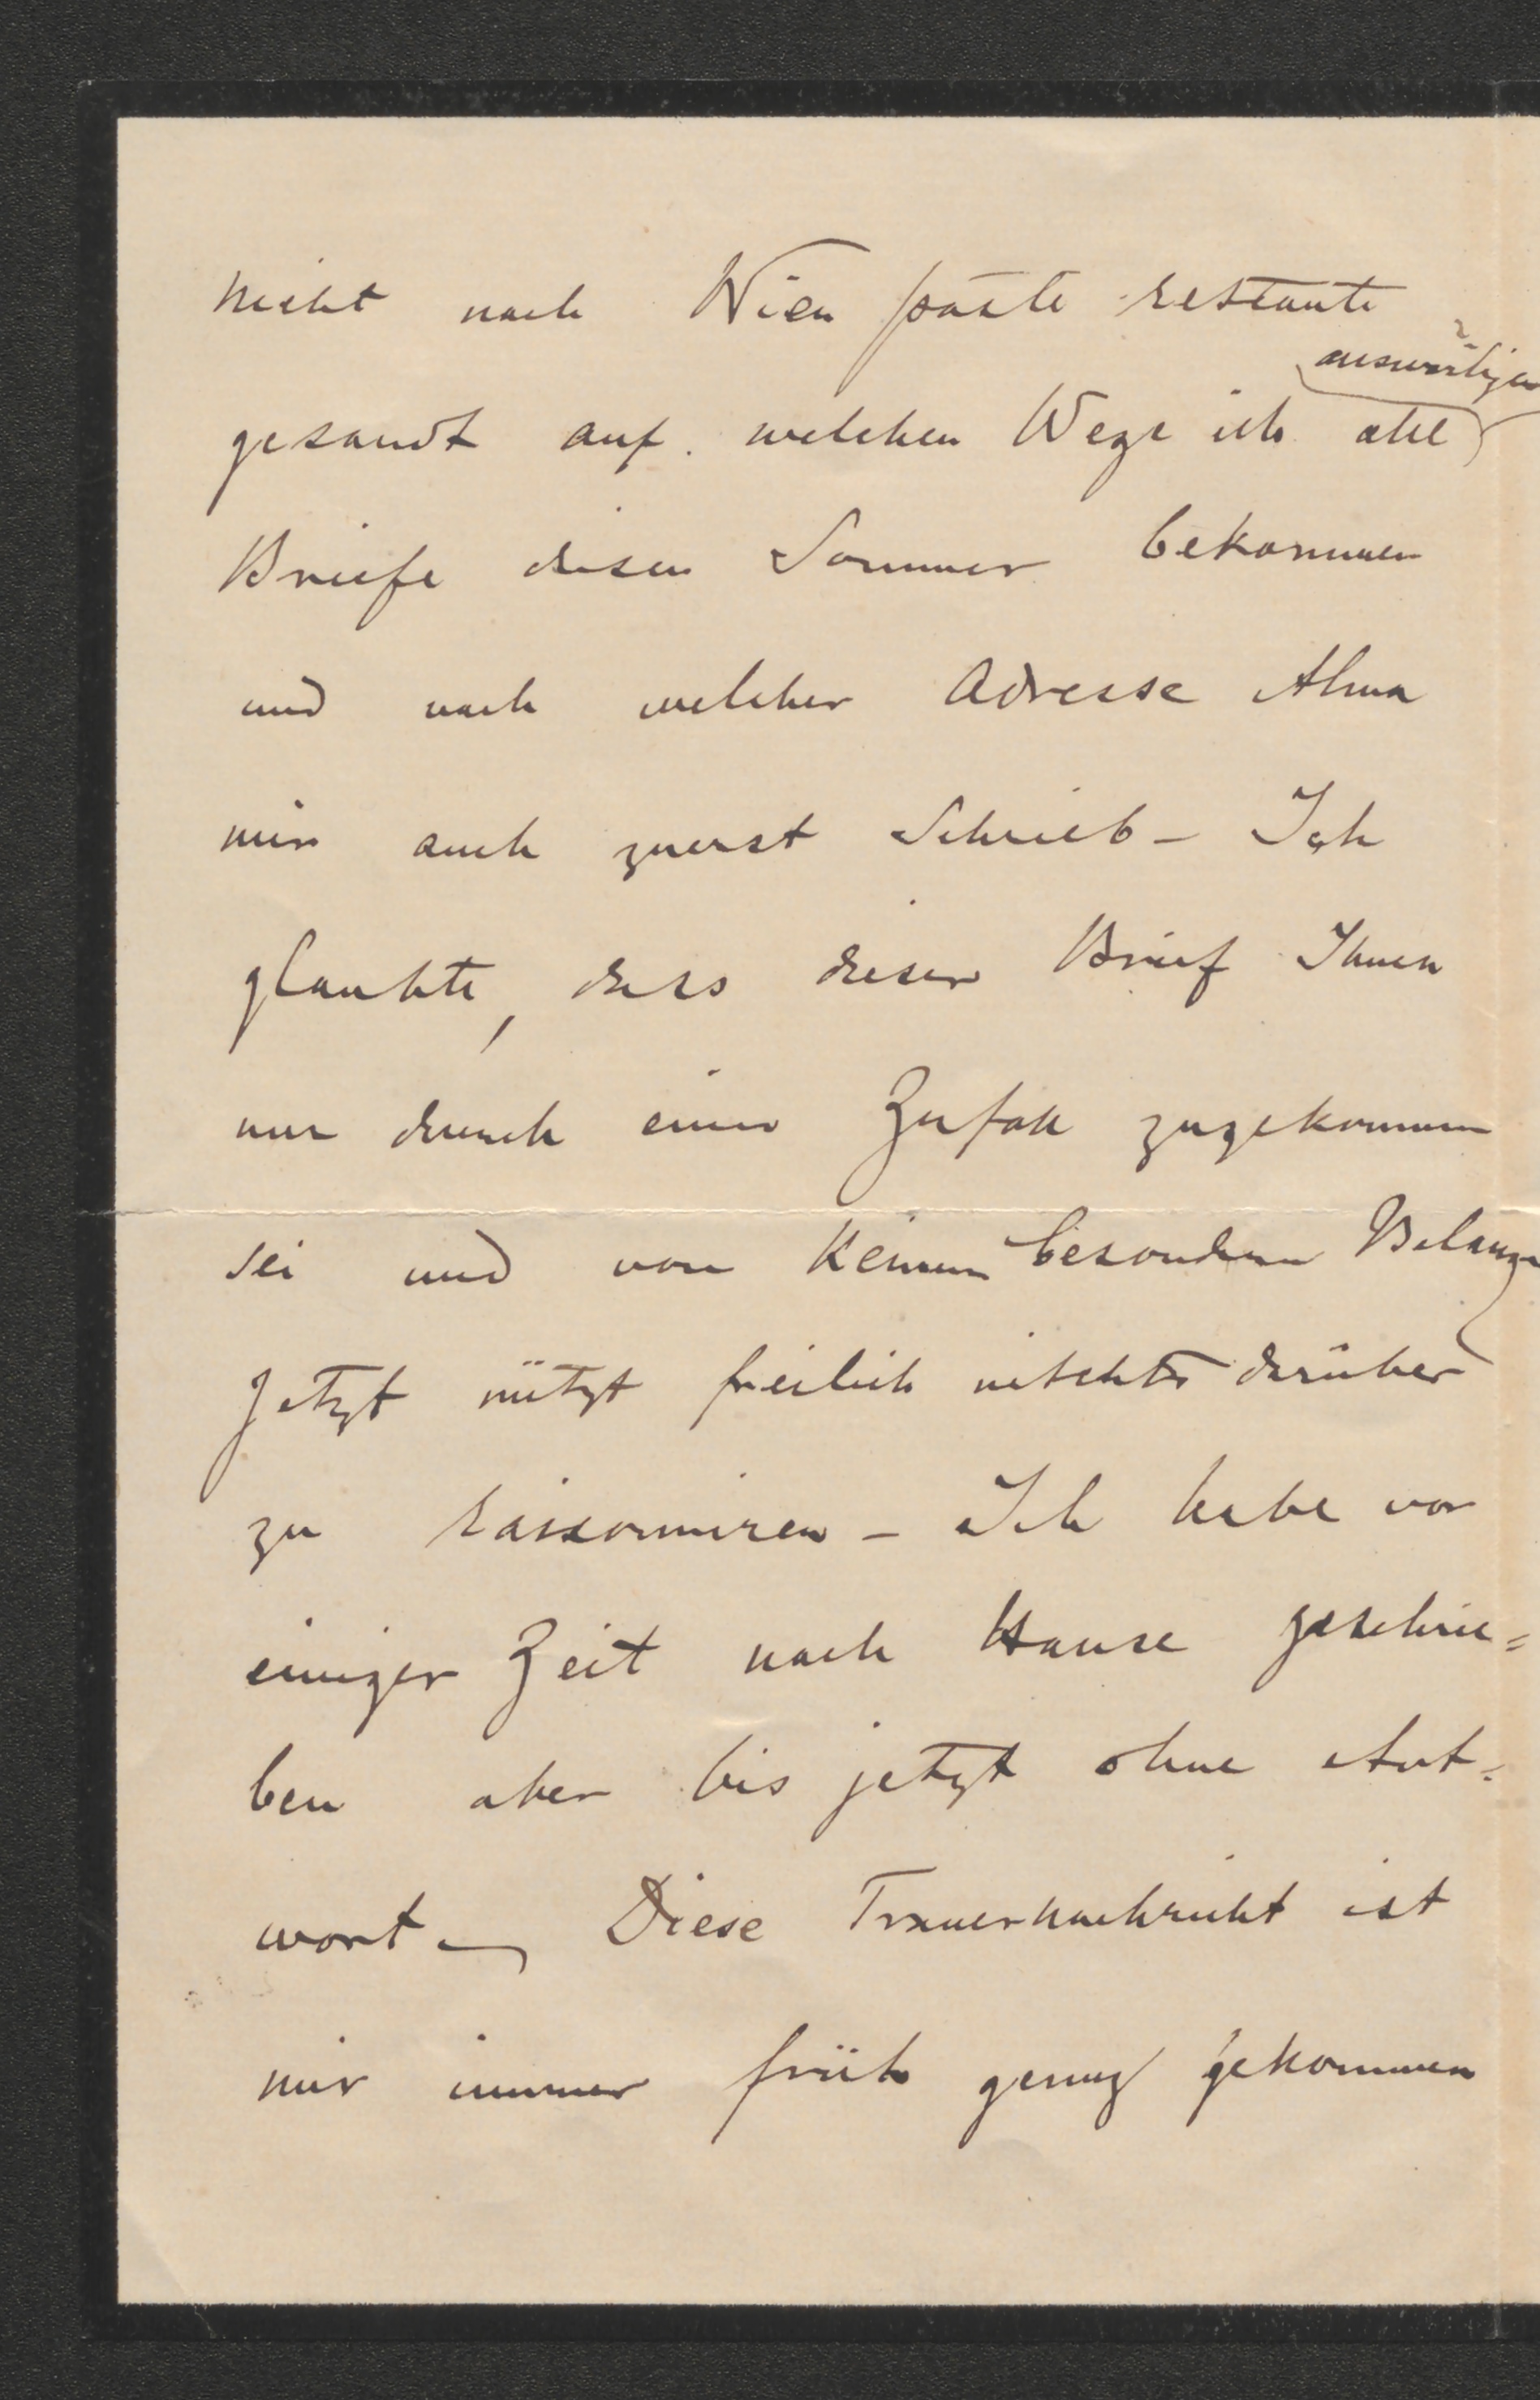 nicht nach Wien poste restante
auswärtigen
gesandt auf welchen Wege ich alle
Briefe diesen Sommer bekommen
und nach welcher Adresse Alma
mir auch zuerst Schrieb - Ich
glaubte, dass dieser Brief Ihnen
nur durch einen Zufall zugekommen
sei und von keinem besonderen Belange
Jetzt nützt freilich nichts darüber
zu raisonniren - Ich habe vor
einiger Zeit nach Hause geschrie=
ben aber bis jetzt ohne Ant=
wort - Diese Trauernachricht ist
mir immer früh genug gekommen